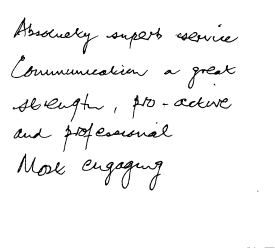 Absolutely superb service
Communication a great
strength, pro-active
and professional
Most engaging